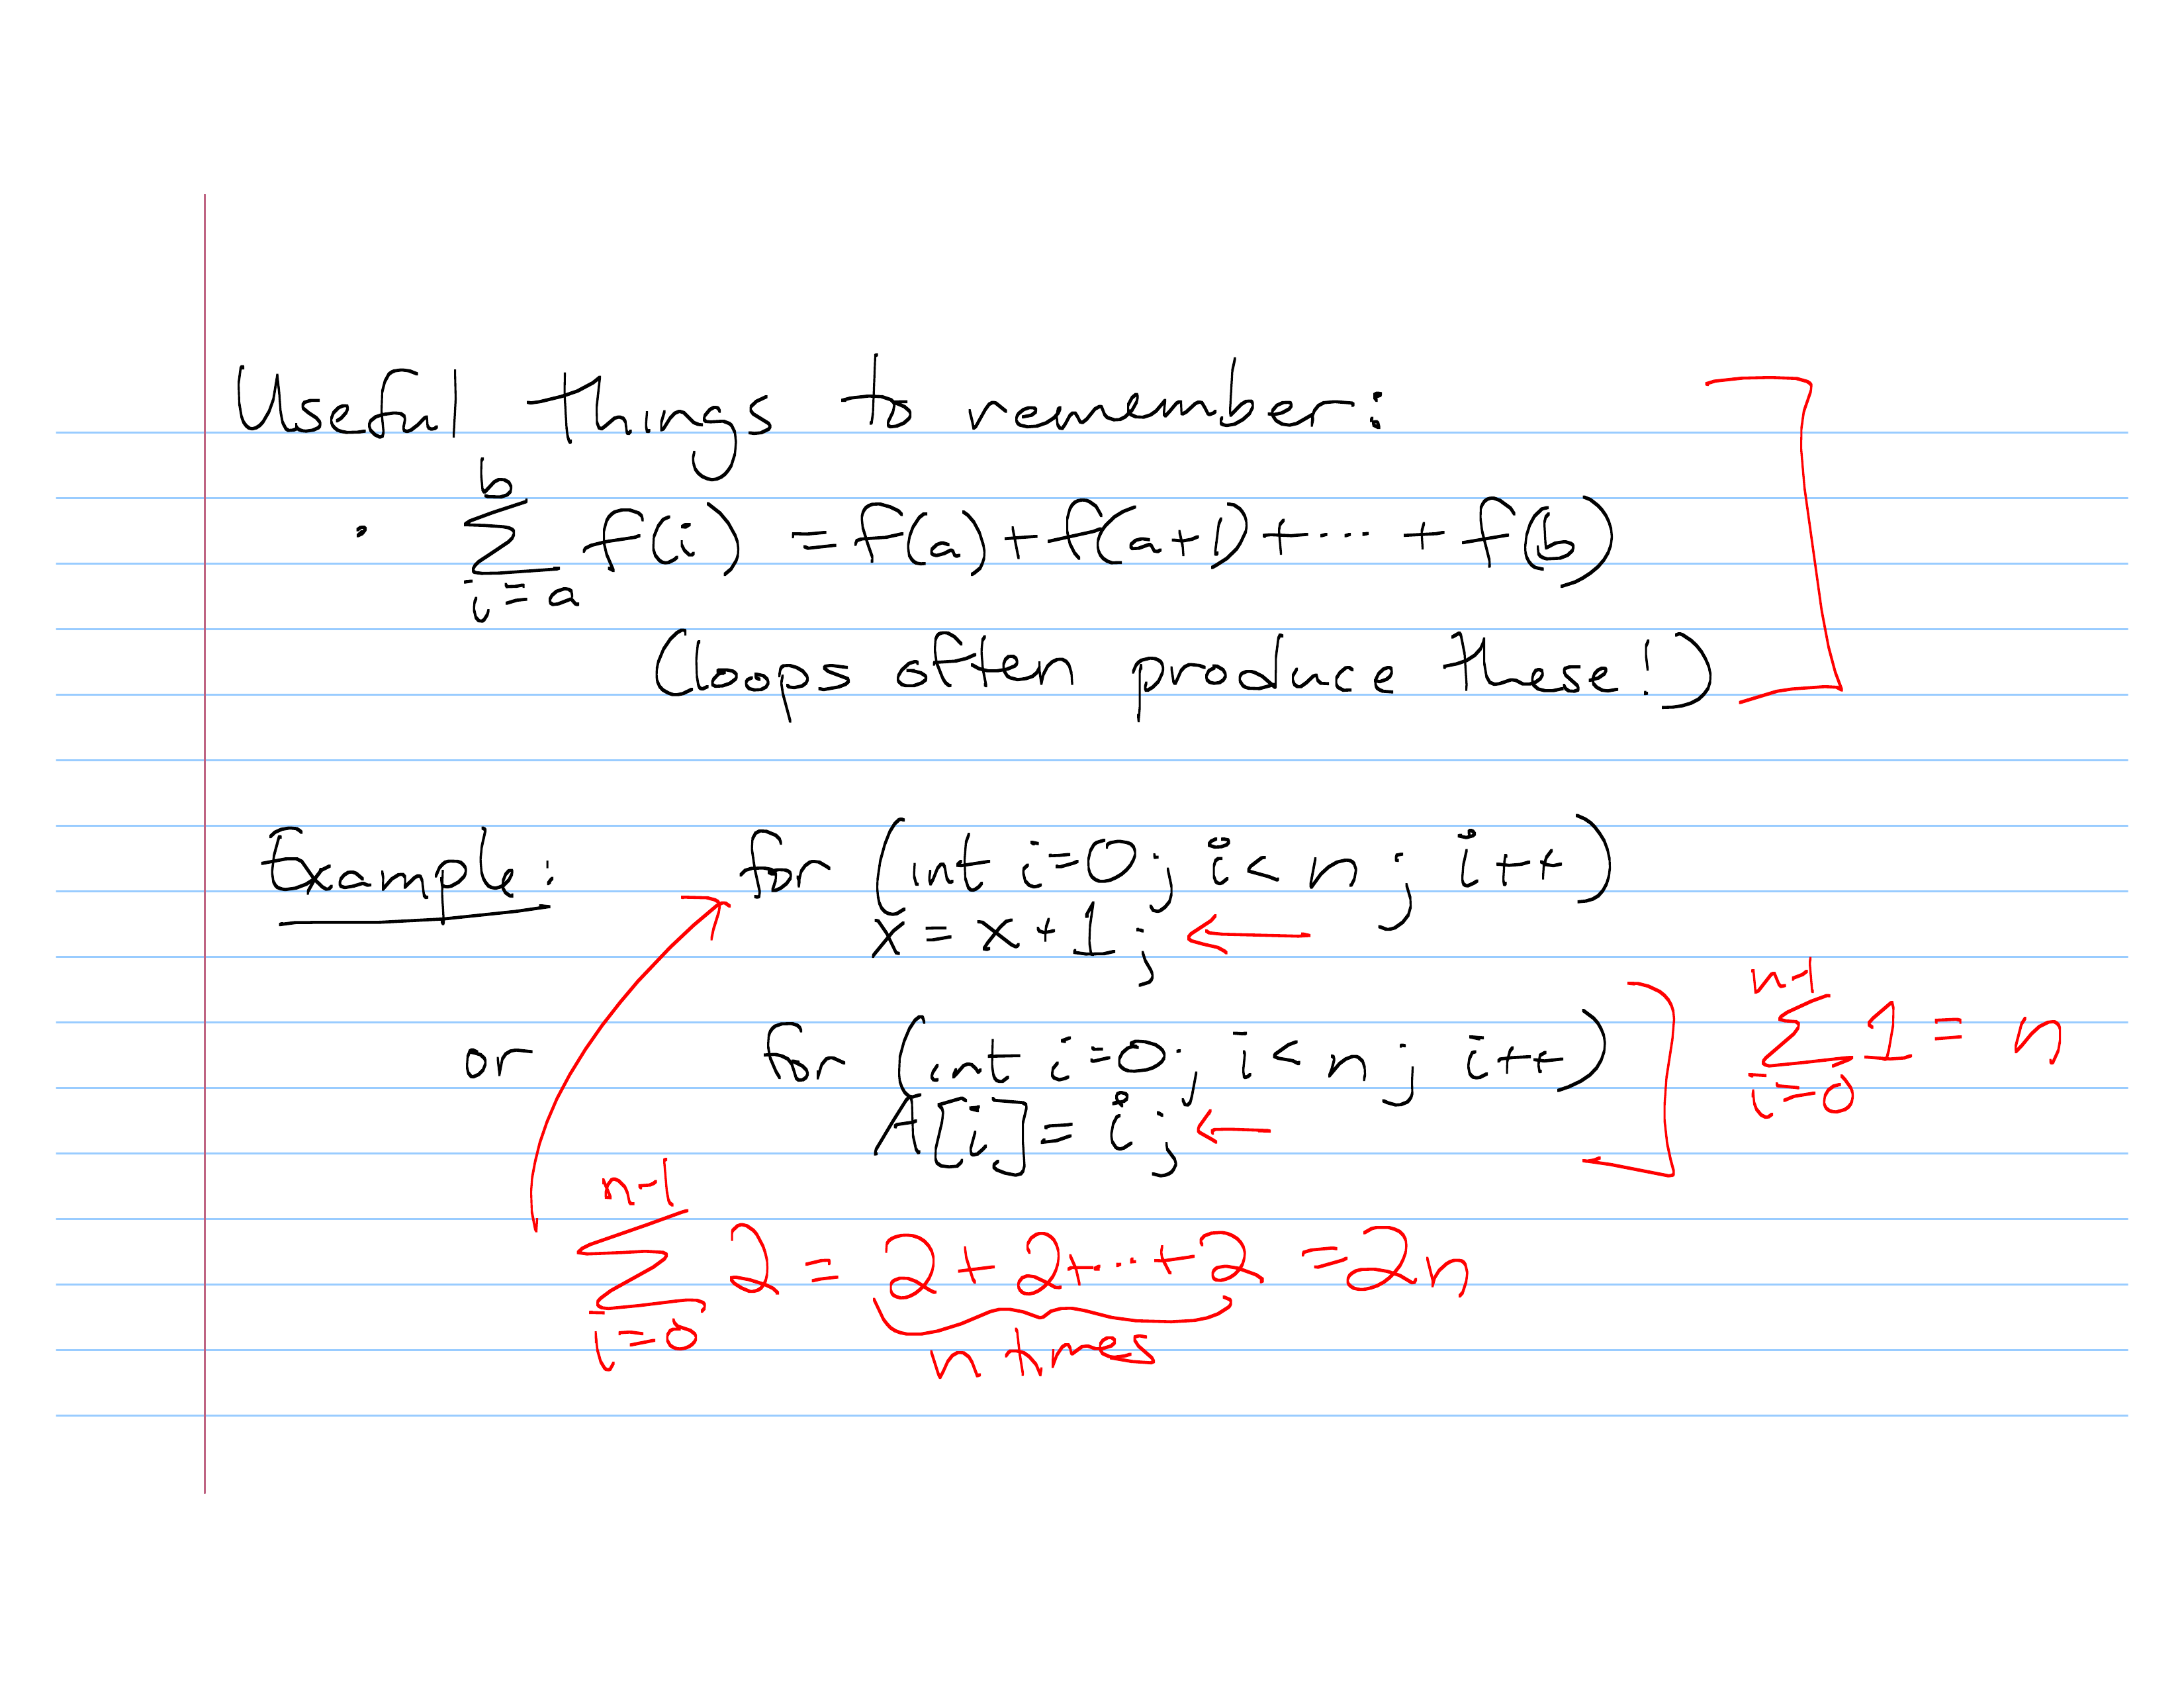 Useful things to remember:
• ∑_{i=a}^{b} f(i) = f(a) + f(a+1) + ··· + f(b)
(loops often produce these!)
Example: for (int i=0; i < n; i++)
x = x + 1;
or for (int i=0; i < n; i++)
A[i] = i;
∑_{i=0}^{n-1} 1 = n
∑_{i=0}^{n-1} 2 = 2 + 2 + ··· + 2 = 2n
n times